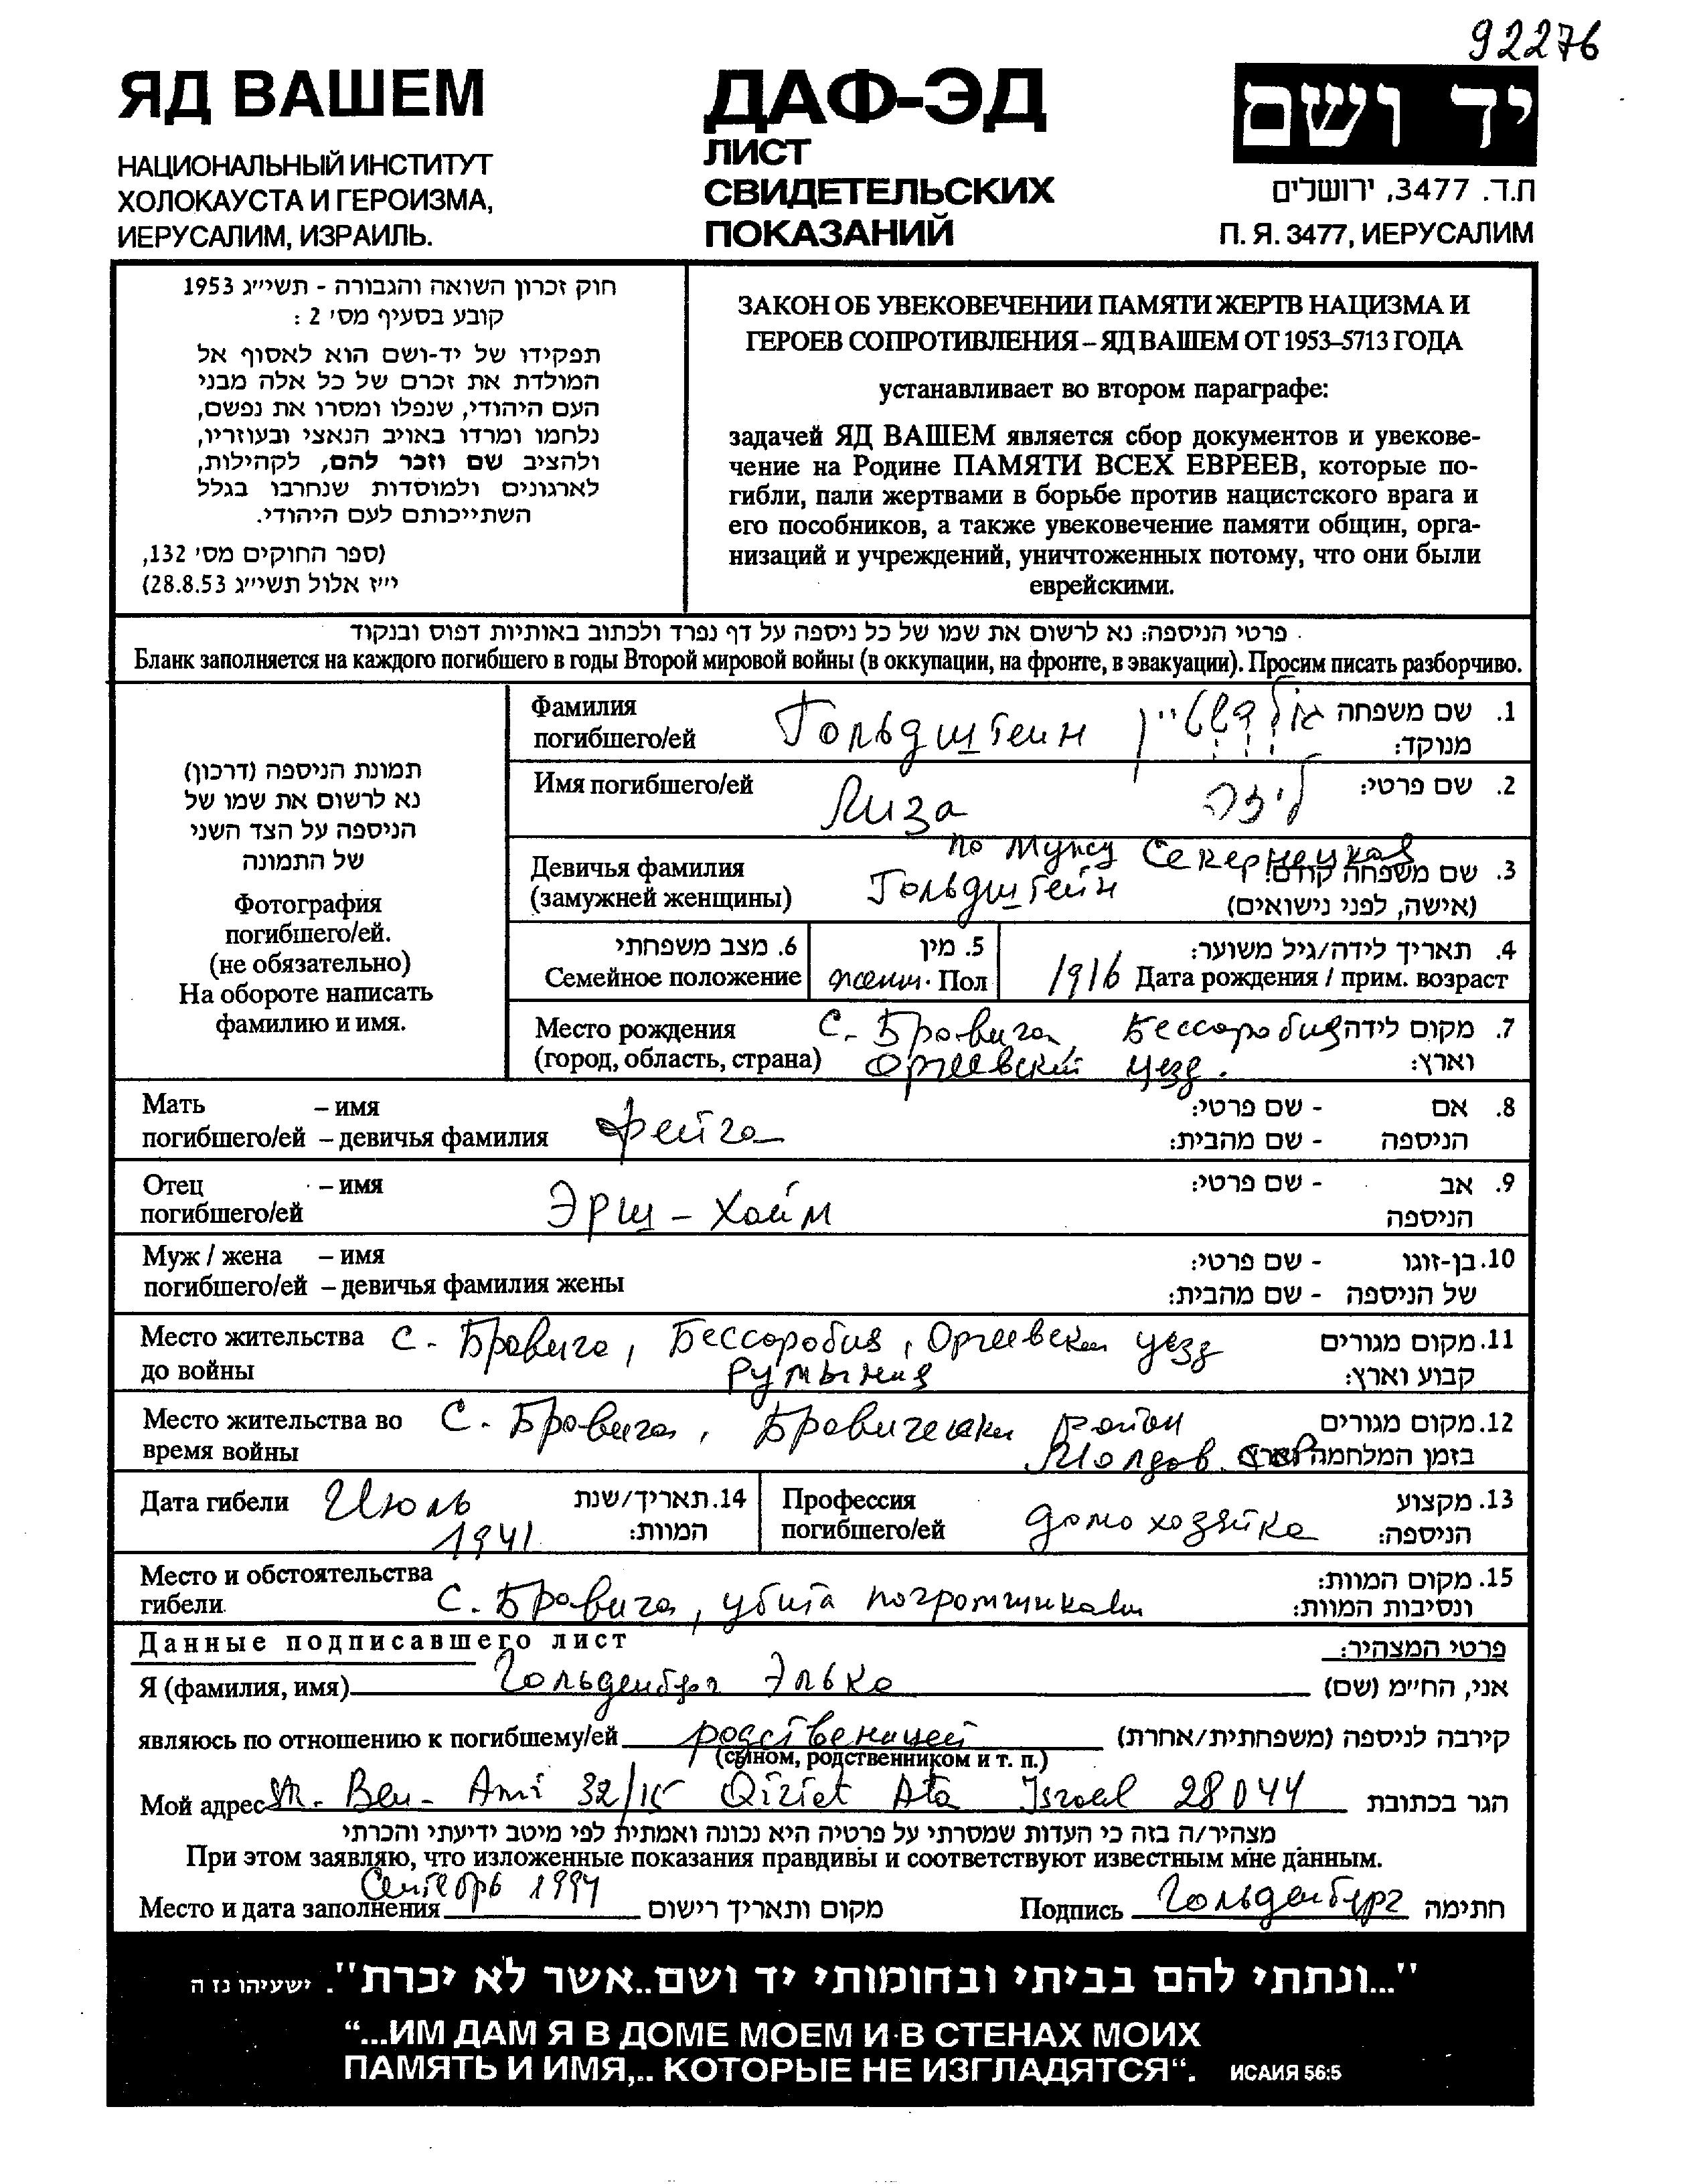 92276
ЯД ВАШЕМ
НАЦИОНАЛЬНЫЙ ИНСТИТУТ
ХОЛОКАУСТА И ГЕРОИЗМА,
ИЕРУСАЛИМ, ИЗРАИЛЬ.
ДАФ-ЭД
ЛИСТ
СВИДЕТЕЛЬСКИХ
ПОКАЗАНИЙ
יד ושם
ת.ד. 3477, ירושלים
П. Я. 3477, ИЕРУСАЛИМ
חוק זכרון השואה והגבורה - תשי״ג 1953
קובע בסעיף מס׳ 2 :
תפקידו של יד-ושם הוא לאסוף אל
המולדת את זכרם של כל אלה מבני
העם היהודי, שנפלו ומסרו את נפשם,
נלחמו ומרדו באויב הנאצי ובעוזריו,
ולהציב שם וזכר להם, לקהילות,
לארגונים ולמוסדות שנחרבו בגלל
השתייכותם לעם היהודי.
(ספר החוקים מס׳ 132,
י״ז אלול תשי״ג 28.8.53)
ЗАКОН ОБ УВЕКОВЕЧЕНИИ ПАМЯТИ ЖЕРТВ НАЦИЗМА И
ГЕРОЕВ СОПРОТИВЛЕНИЯ – ЯД ВАШЕМ ОТ 1953–5713 ГОДА
устанавливает во втором параграфе:
задачей ЯД ВАШЕМ является сбор документов и увекове-
чение на Родине ПАМЯТИ ВСЕХ ЕВРЕЕВ, которые по-
гибли, пали жертвами в борьбе против нацистского врага и
его пособников, а также увековечение памяти общин, орга-
низаций и учреждений, уничтоженных потому, что они были
еврейскими.
פרטי הניספה: נא לרשום את שמו של כל ניספה על דף נפרד ולכתוב באותיות דפוס ובנקוד
Бланк заполняется на каждого погибшего в годы Второй мировой войны (в оккупации, на фронте, в эвакуации). Просим писать разборчиво.
תמונת הניספה (דרכון)
נא לרשום את שמו של
הניספה על הצד השני
של התמונה
Фотография
погибшего/ей.
(не обязательно)
На обороте написать
фамилию и имя.
Фамилия Гольдштейн גולדשטיין 1. שם משפחה
погибшего/ей מנוקד:
Имя погибшего/ей Лиза ליזה 2. שם פרטי:
по мужу Секернецкая
Девичья фамилия Гольдштейн 3. שם משפחה קודם:
(замужней женщины) (אישה, לפני נישואים)
6. מצב משפחתי 5. מין 4. תאריך לידה/גיל משוער:
Семейное положение женщ. Пол 1916 Дата рождения / прим. возраст
Место рождения С. Бравича, Бессарабия 7. מקום לידה
(город, область, страна) Оргеевский уезд. וארץ:
Мать – имя Фейга - שם פרטי: 8. אם
погибшего/ей – девичья фамилия - שם מהבית: הניספה
Отец – имя Эрш - Хайм - שם פרטי: 9. אב
погибшего/ей הניספה
Муж / жена – имя - שם פרטי: 10. בן-זוגו
погибшего/ей – девичья фамилия жены - שם מהבית: של הניספה
Место жительства С. Бравича, Бессарабия, Оргеевский уезд 11. מקום מגורים
до войны Румыния קבוע וארץ:
Место жительства во С. Бравича, Бравичский район 12. מקום מגורים
время войны Молдав. ССР בזמן המלחמה וארץ
Дата гибели Июль 14. תאריך/שנת Профессия домохозяйка 13. מקצוע
1941 המוות: погибшего/ей הניספה:
Место и обстоятельства 15. מקום המוות:
гибели. С. Бравича, убита погромщиками ונסיבות המוות:
Данные подписавшего лист פרטי המצהיר:
Я (фамилия, имя) Гольденберг Элька אני, הח״מ (שם)
являюсь по отношению к погибшему/ей родственницей קירבה לניספה (משפחתית/אחרת)
(сыном, родственником и т. п.)
Мой адрес Str. Ben-Ami 32/15 Qiriet Ata Israel 28044 הגר בכתובת
מצהיר/ה בזה כי העדות שמסרתי על פרטיה היא נכונה ואמתית לפי מיטב ידיעתי והכרתי
При этом заявляю, что изложенные показания правдивы и соответствуют известным мне данным.
Место и дата заполнения Сентябрь 1994 מקום ותאריך רישום Подпись Гольденберг חתימה
"...ונתתי להם בביתי ובחומותי יד ושם..אשר לא יכרת". ישעיהו נו ה
“...ИМ ДАМ Я В ДОМЕ МОЕМ И В СТЕНАХ МОИХ
ПАМЯТЬ И ИМЯ,.. КОТОРЫЕ НЕ ИЗГЛАДЯТСЯ“. ИСАИЯ 56:5